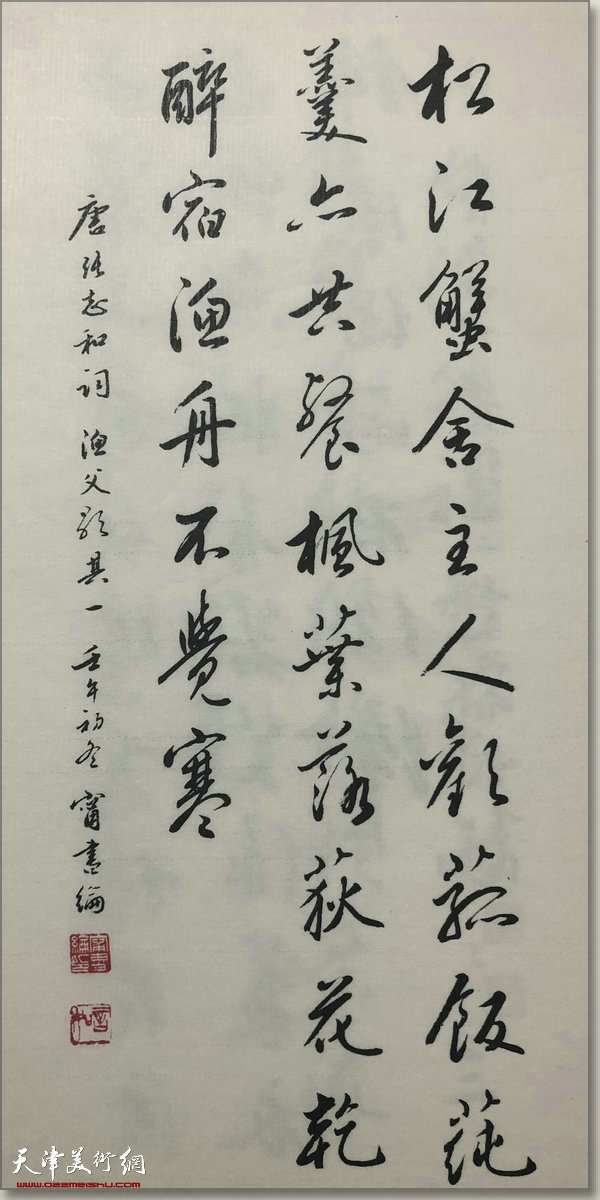 松江蟹舍主人歡菰飯蓴
羹亦共餐楓葉落荻花乾
醉宿漁舟不覺寒
唐張志和詞漁父歌其一壬午初冬甯書綸
甯書綸印
天津美術網
www.022meishu.com